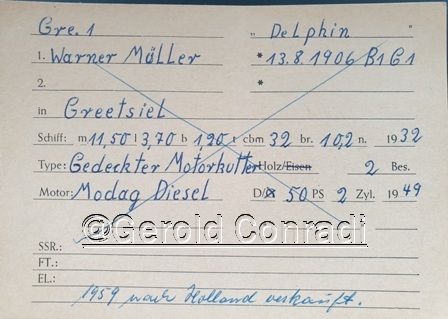 Gre. 1 „ Delphin "
1. Warner Müller * 13.8.1906 B1G1
2. *
in Greetsiel
Schiff: m 11,50 l 3,70 b 1,20 t cbm 32 br. 10,2 n. 1932
Type: Gedeckter Motorkutter Holz/Eisen 2 Bes.
Motor: Modag Diesel D/ 50 PS 2 Zyl. 1949
©Gerold Conradi
SSR.:
FT.:
EL.:
1959 nach Holland verkauft.